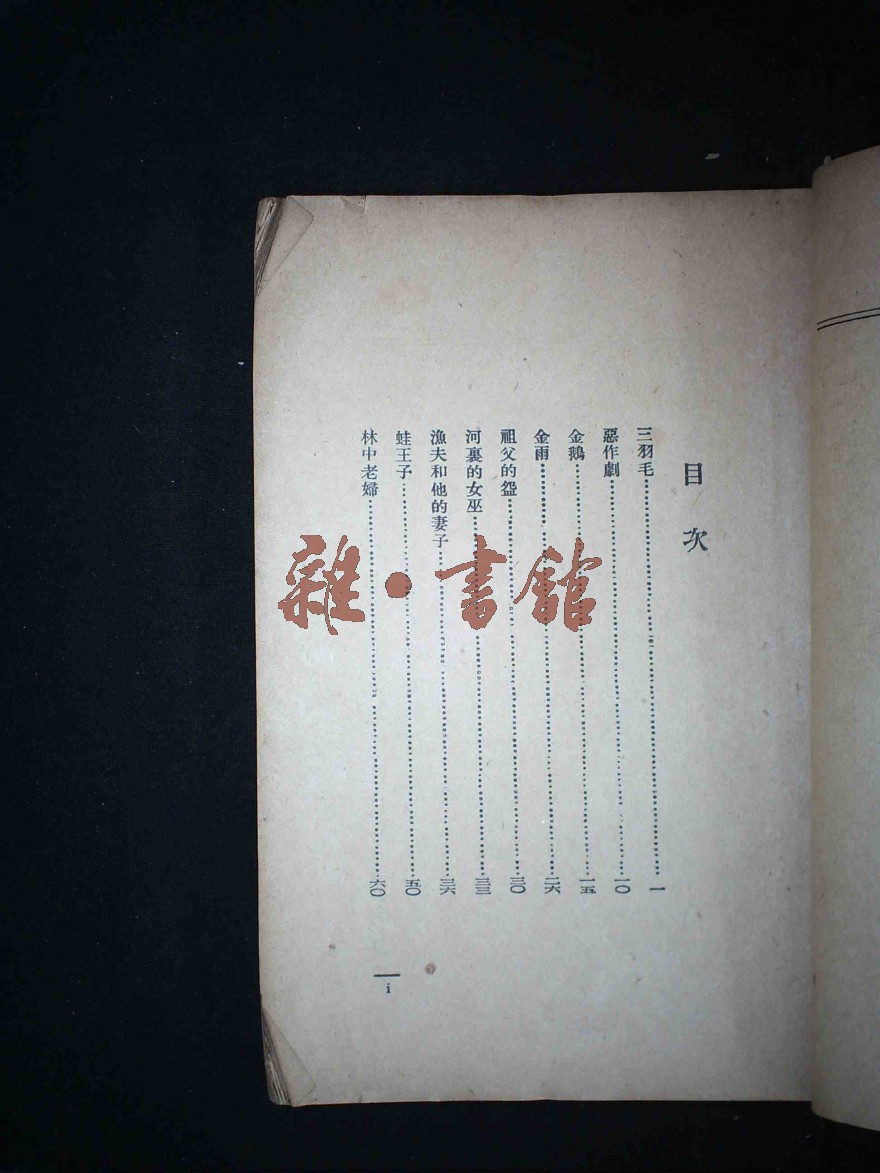 目次
三羽毛……一
惡作劇……一〇
金鵝……一五
金雨……二六
祖父的盌……三〇
河裏的女巫……三三
漁夫和他的妻子……三六
蛙王子……五〇
林中老婦……六〇
i
雜·書館